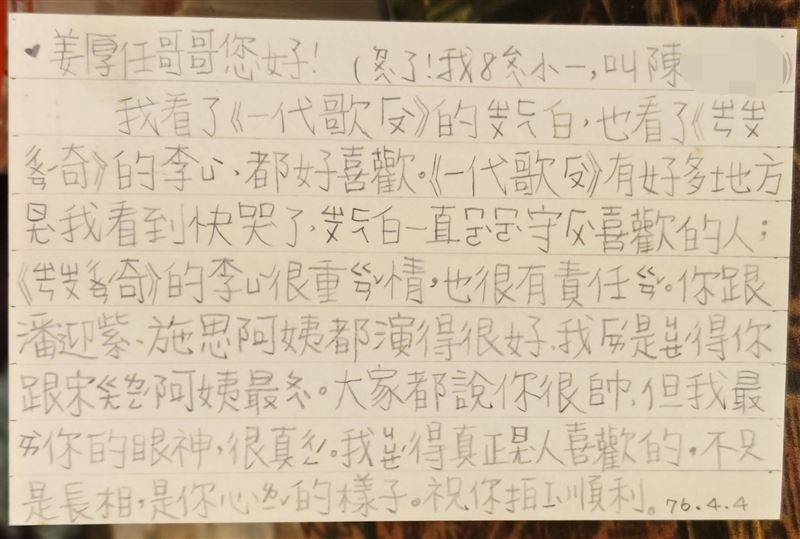 ♥姜厚任哥哥您好! (了!我8小一,叫陳 )
我看了《一代歌》的白,也看了《
奇》的李,都好喜歡。《一代歌》有好多地方
我看到快哭了,白一直守喜歡的人;
《奇》的李很重情,也很有責任。你跟
潘迎紫、施思阿姨都演得很好,我是得你
跟宋阿姨最。大家都說你很帥,但我最
你的眼神,很真。我得真正人喜歡的,不只
是長相,是你心的樣子。祝你拍順利。76.4.4